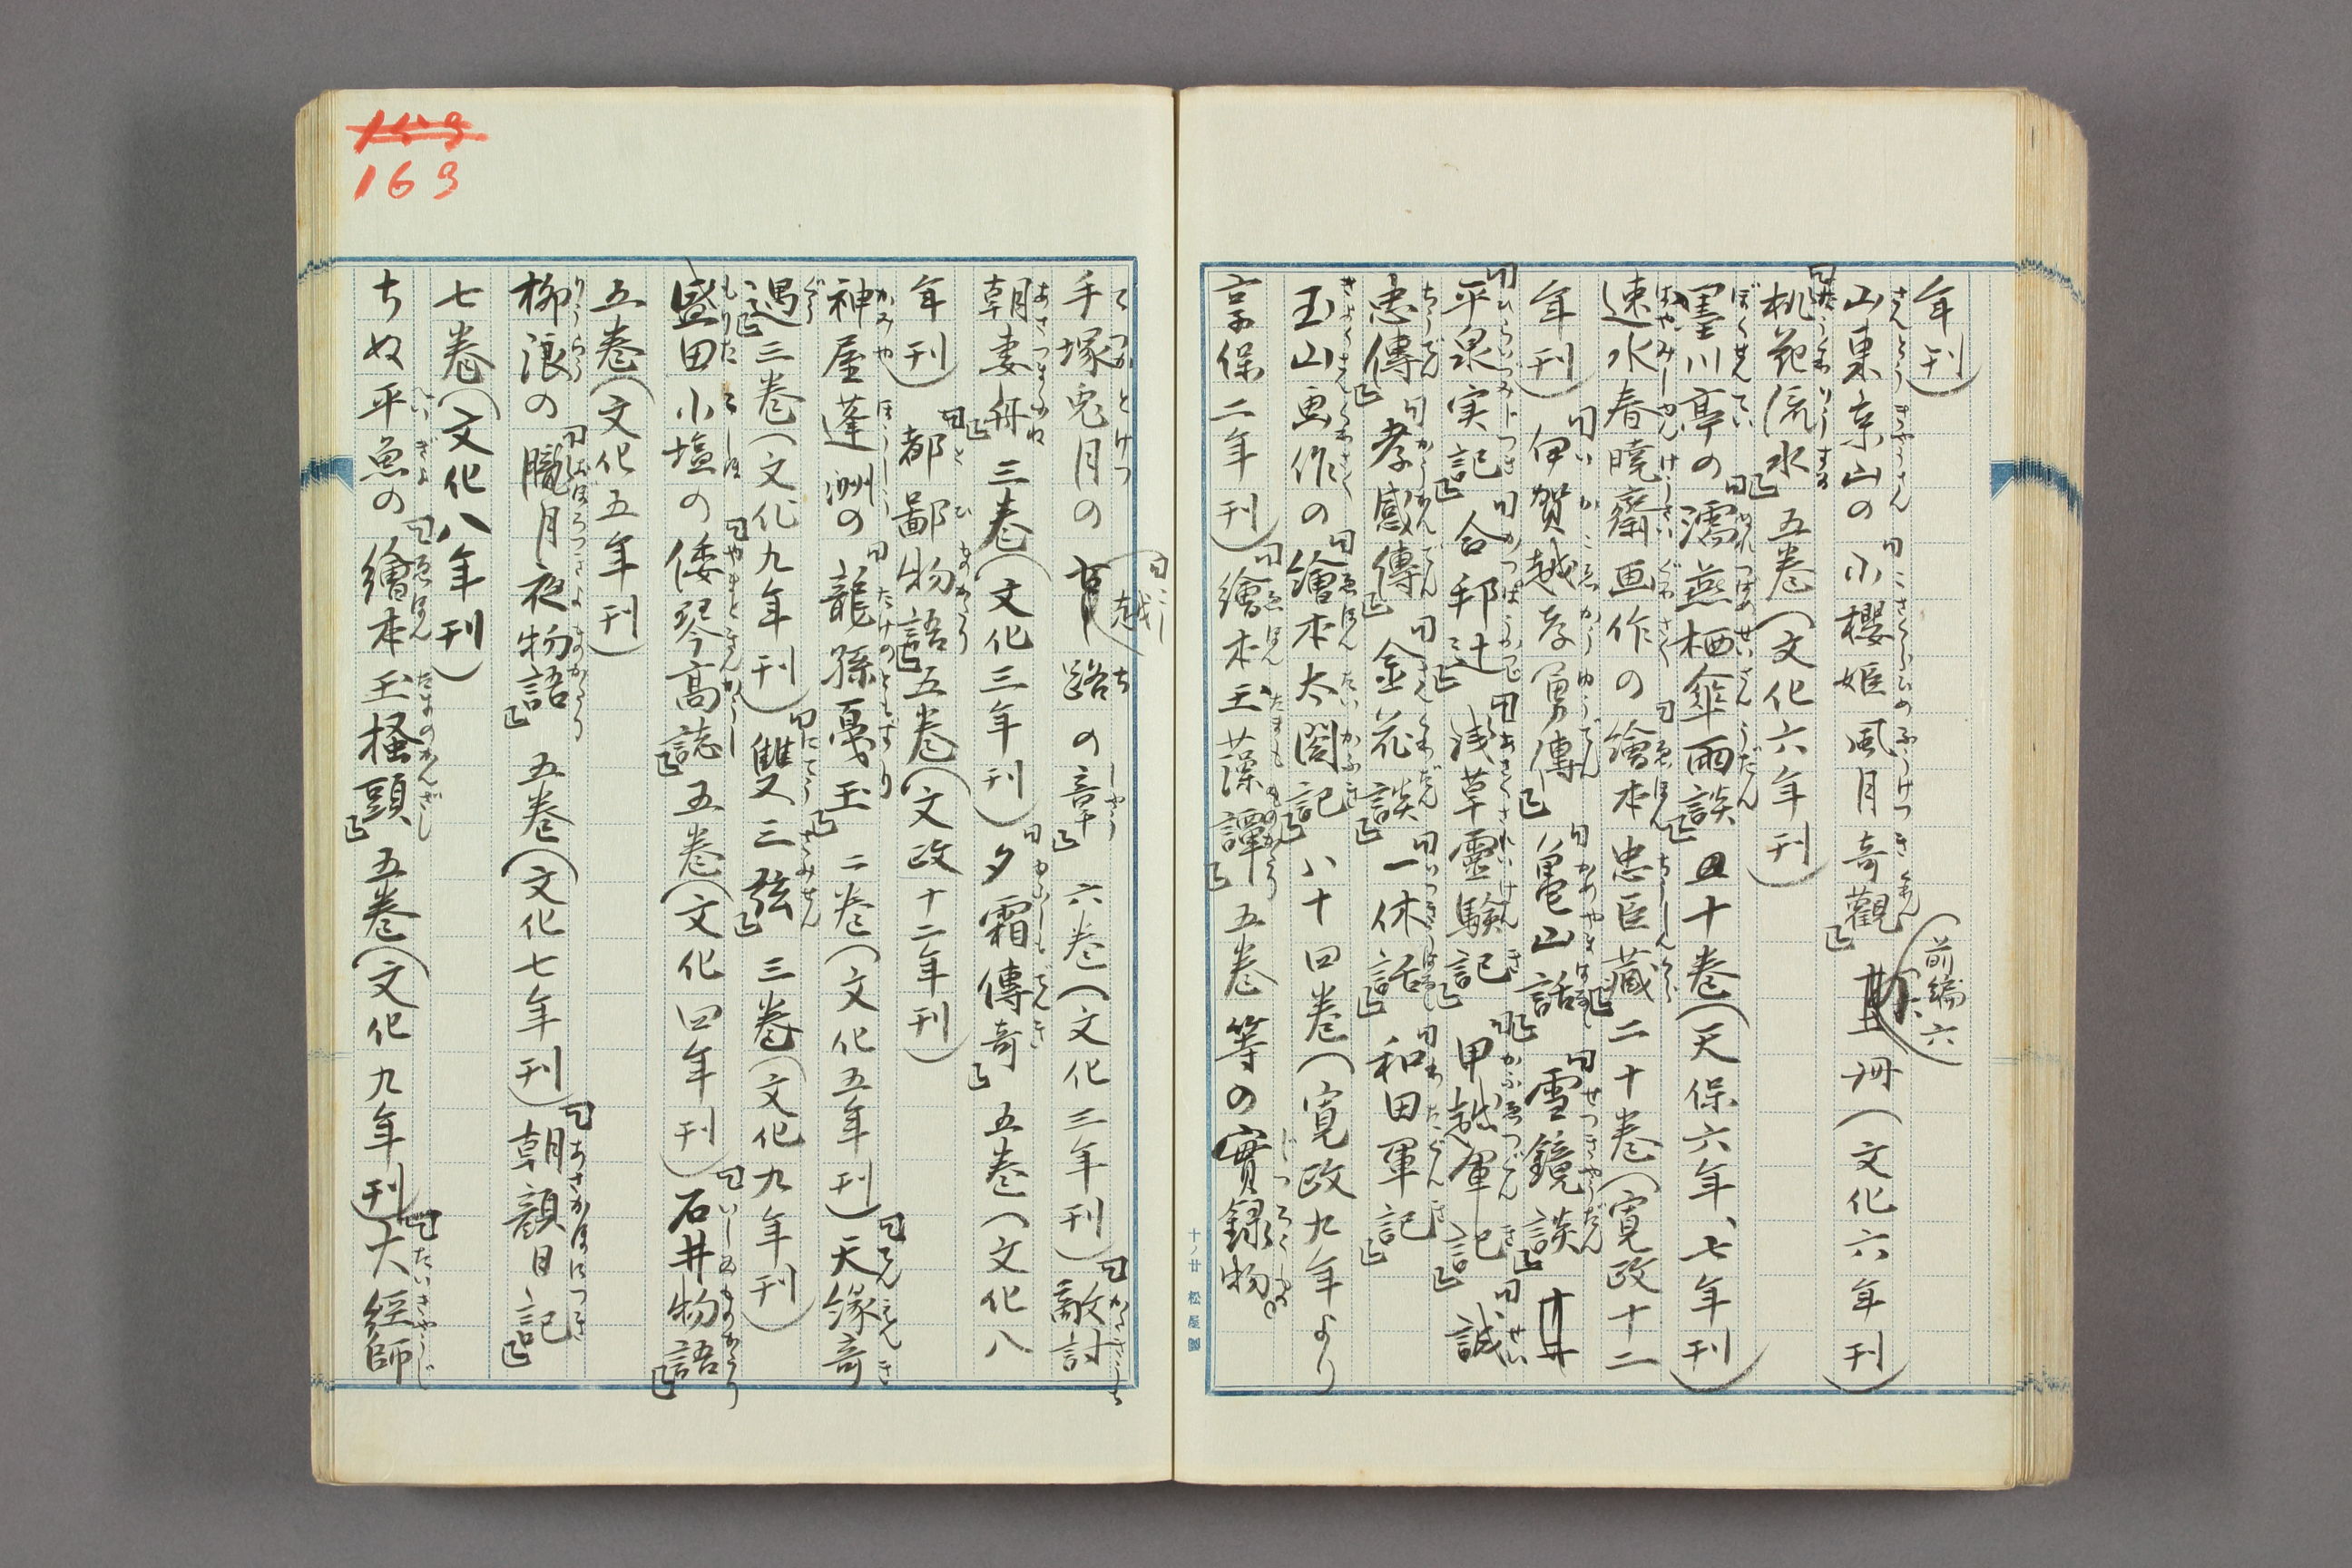 年刊)
山東京山の「小櫻姫風月奇觀」前編六冊(文化六年刊)
「桃花流水」五巻(文化六年刊)
墨川亭の「濡燕栖傘雨談」十巻(天保六年、七年刊)
速水春暁齋画作の「繪本忠臣蔵」二十巻(寛政十二
年刊)「伊賀越孝勇傳」「亀山話」「雪鏡談」
「平泉実記」「合邦辻」「浅草靈験記」「甲越軍記」「誠
忠傳」「孝感傳」「金花談」「一休話」「和田軍記」
玉山画作の「繪本太閤記」八十四巻(寛政九年より
享保二年刊)「繪本玉藻譚」五巻等の實録物。
十ノ廿 松屋製
手塚兎月の「越路の章」六巻(文化三年刊)「敵討
朝妻舟」三巻(文化三年刊)「夕霜傳奇」五巻(文化八
年刊)「都鄙物語」五巻(文政十二年刊)
神屋蓬洲の「龍孫戞玉」二巻(文化五年刊)「天縁奇
遇」三巻(文化九年刊)「雙三弦」三巻(文化九年刊)
盛田小塩の「倭琴高誌」五巻(文化四年刊)「石井物語」
五巻(文化五年刊)
柳浪の「朧月夜物語」五巻(文化七年刊)「朝顔日記」
七巻(文化八年刊)
ちぬ平魚の「繪本玉櫡頭」五巻(文化九年刊)「大経師
163